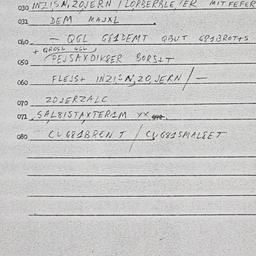 030 INZISN,ZOJERN / LORBERBLETTER MIT FEFER
031 DEM MAJXL
040 - QGL G81DEMT QBUT G81BROT+S
+ QROSL GGL
050 PEJSAXDIKSER BORS1T
060 FLEJS+ INZISN,ZOJERN / -
070 ZOJERZALC
071 SALBISTAXTERIM XX
080 CU G81BREN T / CU G81SMALSET